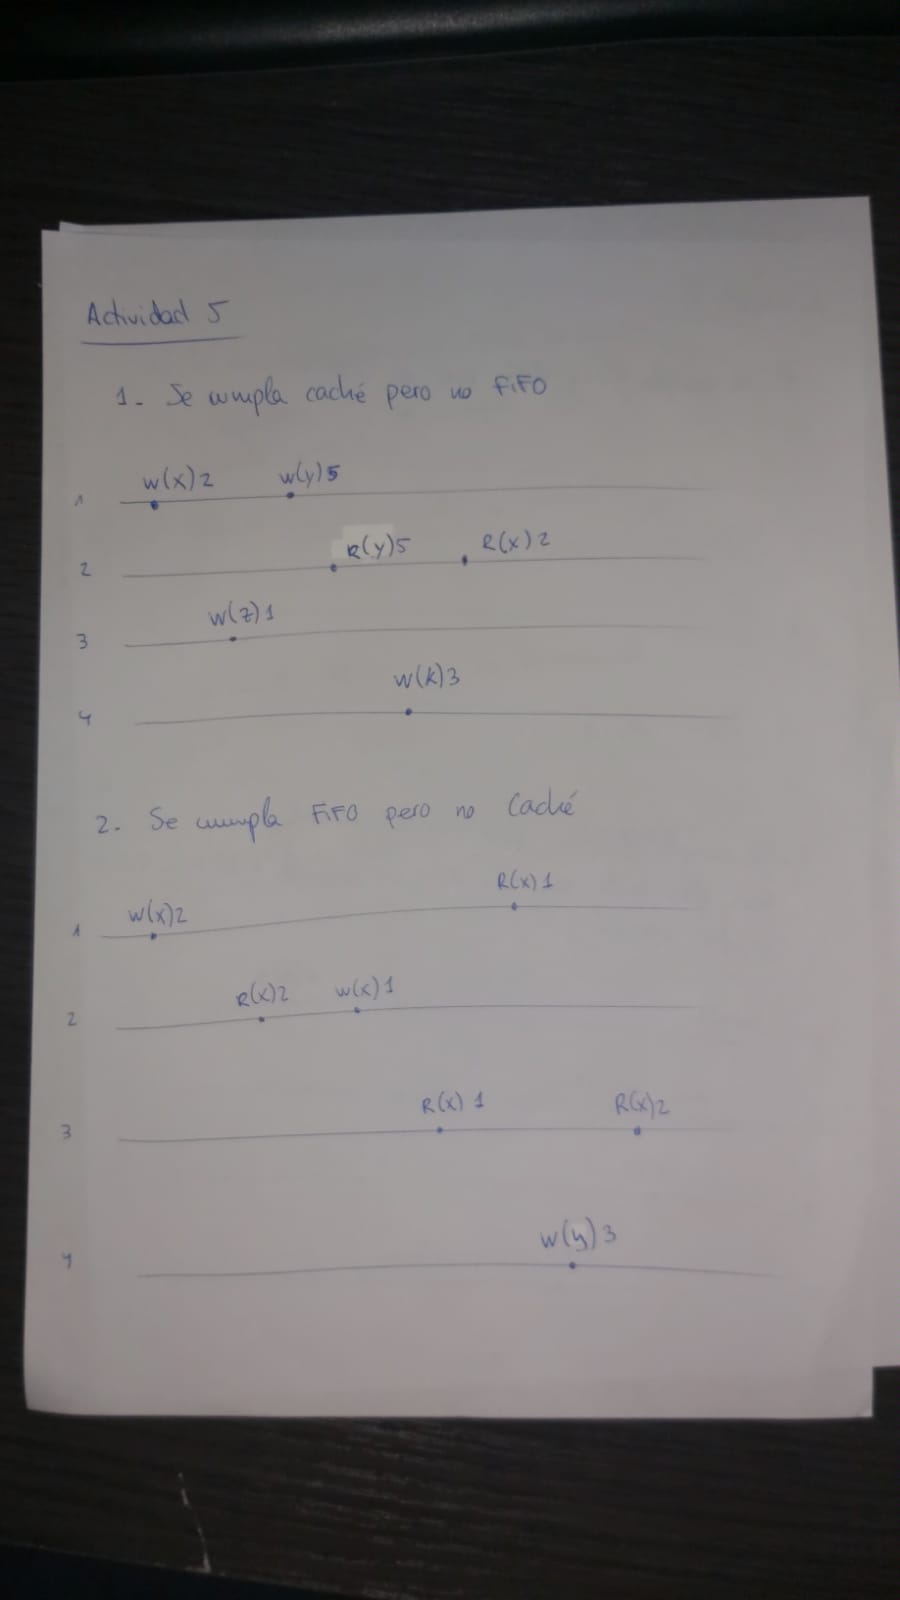 Actividad 5
1- Se cumpla caché pero no FiFO
W(x)2 W(y)5
1
R(y)5 R(x)2
2
W(z)1
3
W(k)3
4
2. Se cumpla FiFO pero no Caché
R(x)1
W(x)2
1
R(x)2 W(x)1
2
R(x)1 R(x)2
3
W(y)3
4